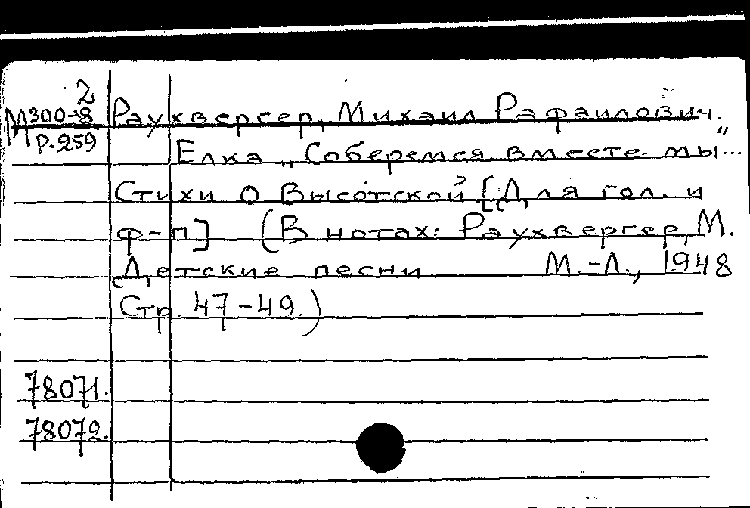 2
М300-8 Раухвергер, Михаил Рафаилович.
Р.259 Елка „Соберемся вместе мы"...
Стихи О Высотской [Для гол. и
ф-п] (В нотах: Раухвергер, М.
Детские песни М.-Л., 1948
Стр. 47-49.)
78071.
78072.